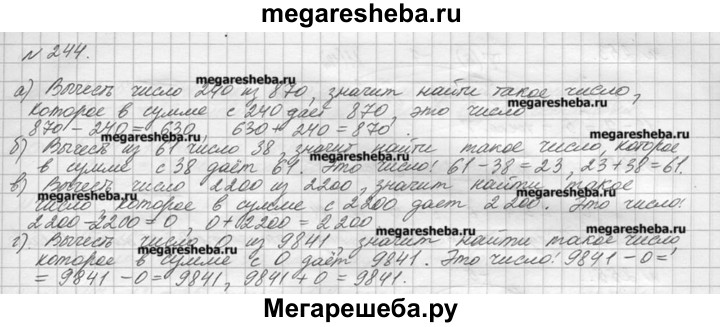 megaresheba.ru
№ 244.
а) Вычесть число 240 из 870, значит найти такое число,
megaresheba.ru megaresheba.ru
которое в сумме с 240 даёт 870, это число
870 - 240 = 630, 630 + 240 = 870
megaresheba.ru
б) Вычесть из 61 число 38, значит найти такое число, которое
в сумме с 38 даёт 61. Это число! 61 - 38 = 23, 23 + 38 = 61.
megaresheba.ru megaresheba.ru
в) Вычесть число 2200 из 2200, значит найти такое
число которое в сумме с 2200 дает 2200. Это число!
megaresheba.ru megaresheba.ru
2200 - 2200 = 0, 0 + 2200 = 2200
г) Вычесть число 0 из 9841, значит найти такое число
megaresheba.ru megaresheba.ru
которое в сумме с 0 даёт 9841. Это число! 9841 - 0 =
= 9841 - 0 = 9841, 9841 + 0 = 9841.
megaresheba.ru
Мегарешеба.ру